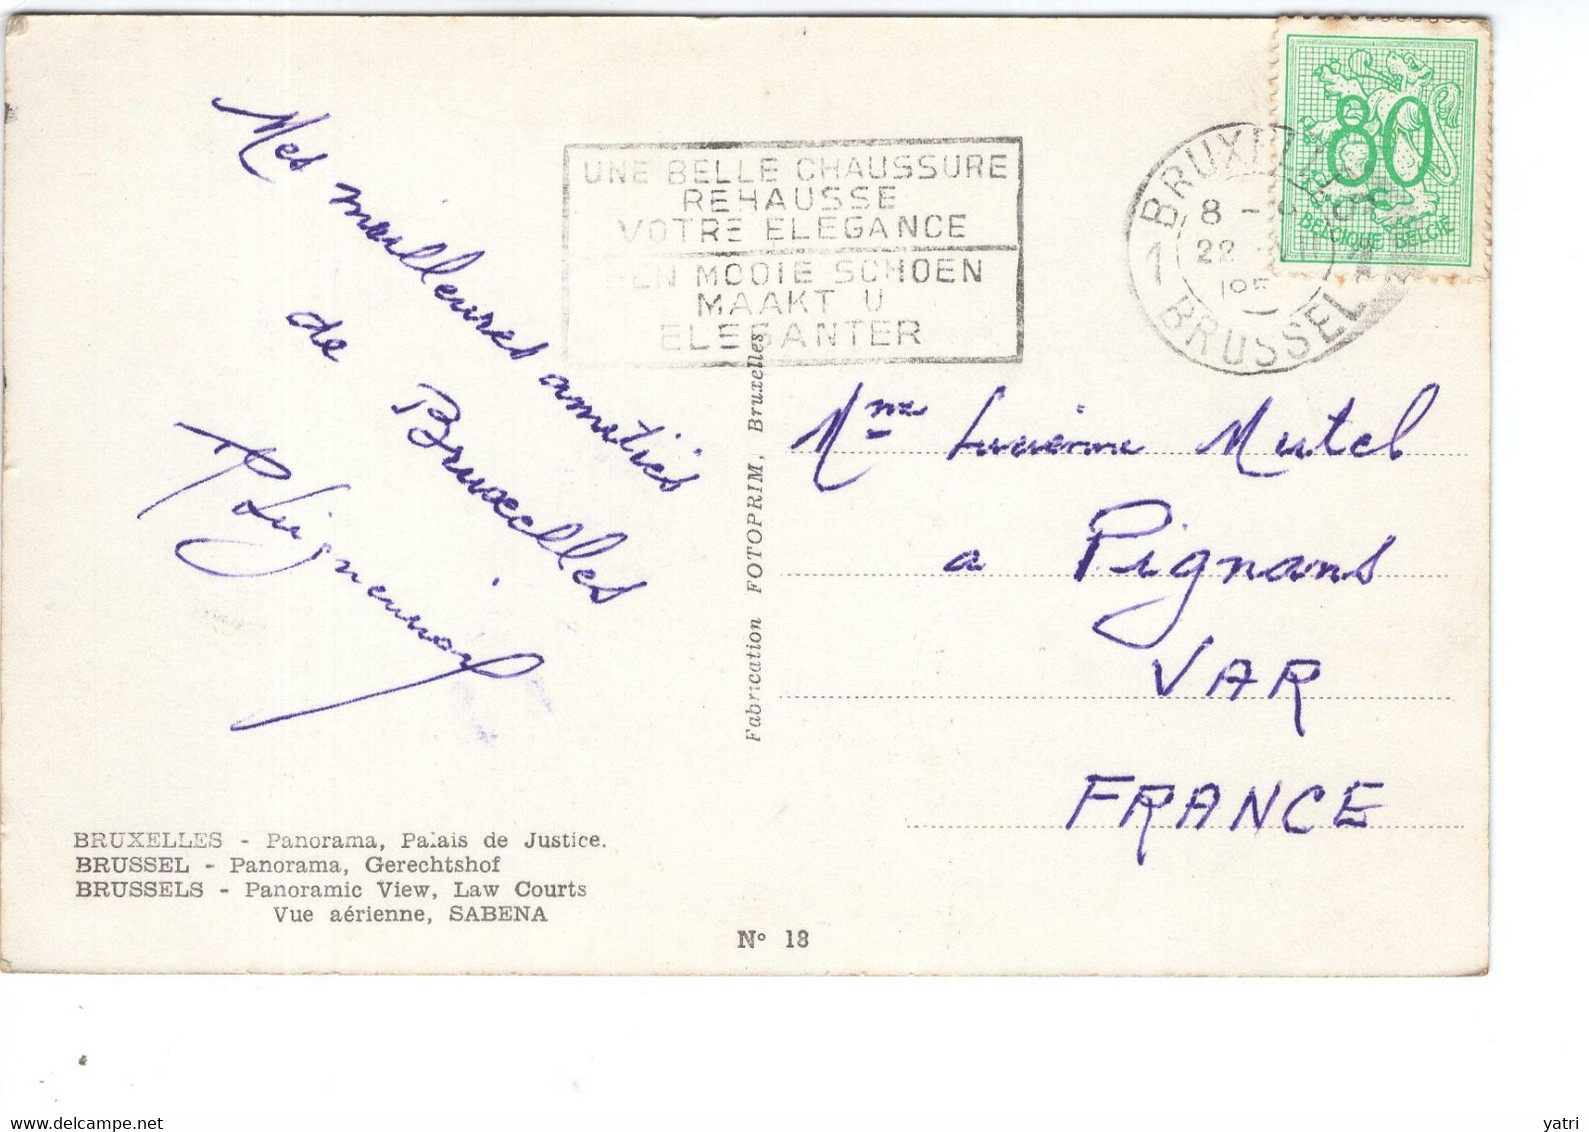 Mes meilleures amitiés
de Bruxelles
UNE BELLE CHAUSSURE
REHAUSSE
VOTRE ELEGANCE
EEN MOOIE SCHOEN
MAAKT U
ELEGANTER
BRUXELLES
8 -
22
195
1 BRUSSEL 1
80
BELGIQUE BELGIË
Mme Lucienne Mutel
a Pignans
VAR
FRANCE
Fabrication FOTOPRIM, Bruxelles
BRUXELLES - Panorama, Palais de Justice.
BRUSSEL - Panorama, Gerechtshof
BRUSSELS - Panoramic View, Law Courts
Vue aérienne, SABENA
N° 18
yatri